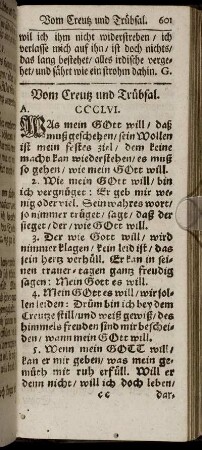 Vom Creutz und Trübsal. 601
wil ich ihm nicht widerstreben / ich
verlasse mich auf ihn / ist doch nichts /
das lang bestehet / alles irdische verge-
het / und fährt wie ein strohm dahin. G.
Vom Creutz und Trübsal.
A. CCCLVI.
WAs mein GOtt will / daß
muß geschehen / sein Wollen
ist mein festes ziel / dem keine
macht kan wiederstehen / es muß
so gehen / wie mein GOtt will.
2. Wie mein GOtt will / bin
ich vergnüget: Er geb mir we-
nig oder viel. Sein wahres wort /
so nimmer trüget / sagt / daß der
sieger / der / wie GOtt will.
3. Der wie Gott will / wird
nimmer klagen / kein leid ist / das
sein hertz verhüll. Er kan in sei-
nen trauer-tagen gantz freudig
sagen: Mein Gott es will.
4. Mein GOtt es will / wir sol-
len leiden: Drüm bin ich bey dem
Creutze still / und weiß gewiß / des
himmels freuden sind mir beschei-
den / wann mein GOtt will.
5. Wenn mein GOTT will /
kan er mir geben / was mein ge-
müth mit ruh erfüll. Will er
denn nicht / will ich doch leben /
cc dar-